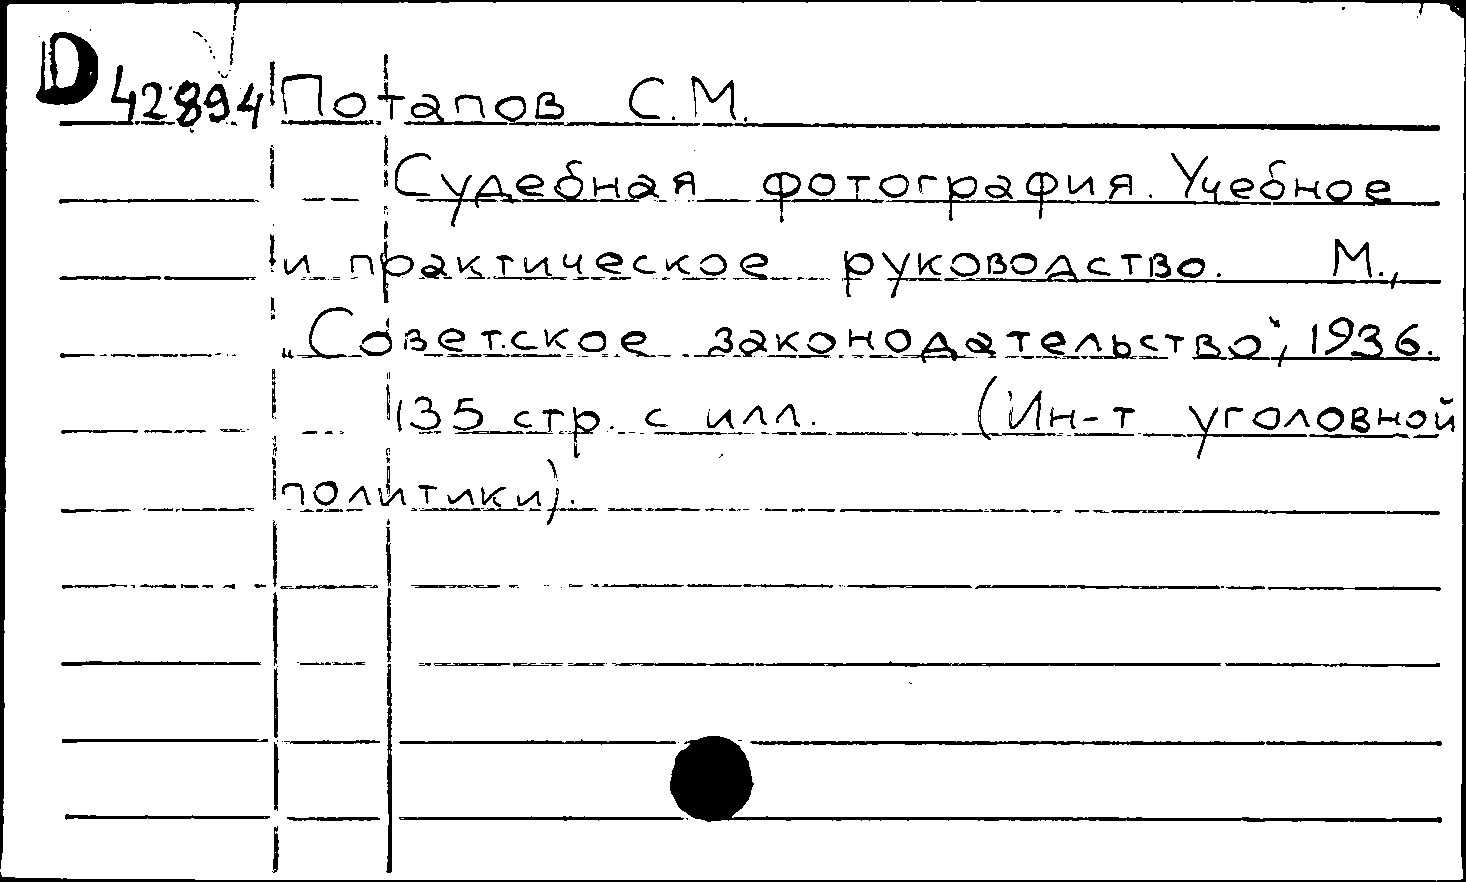 D 42894 Потапов С.М.
Судебная фотография. Учебное
и практическое руководство. М.,
„Советское законодательство", 1936.
135 стр. с илл. (Ин-т уголовной
политики).